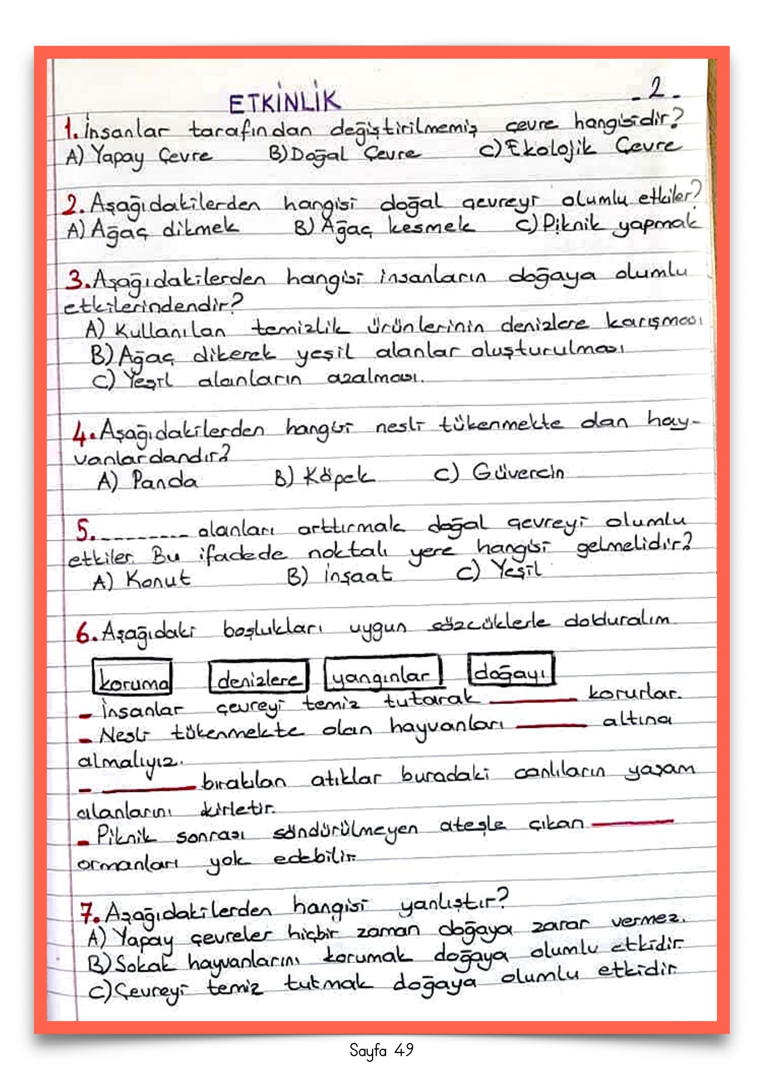 ETKİNLİK
- 2 -
1. İnsanlar tarafından değiştirilmemiş çevre hangisidir?
A) Yapay Çevre B) Doğal Çevre C) Ekolojik Çevre
2. Aşağıdakilerden hangisi doğal çevreyi olumlu etkiler?
A) Ağaç dikmek B) Ağaç kesmek C) Piknik yapmak
3. Aşağıdakilerden hangisi insanların doğaya olumlu
etkilerindendir?
A) Kullanılan temizlik ürünlerinin denizlere karışması
B) Ağaç dikerek yeşil alanlar oluşturulması
C) Yeşil alanların azalması.
4. Aşağıdakilerden hangisi nesli tükenmekte olan hay-
vanlardandır?
A) Panda B) Köpek C) Güvercin
5. _________ alanları arttırmak doğal çevreyi olumlu
etkiler. Bu ifadede noktalı yere hangisi gelmelidir?
A) Konut B) İnşaat C) Yeşil
6. Aşağıdaki boşlukları uygun sözcüklerle dolduralım.
koruma denizlere yangınlar doğayı
- İnsanlar çevreyi temiz tutarak ________ korurlar.
- Nesli tükenmekte olan hayvanları ________ altına
almalıyız.
- ________ bırakılan atıklar buradaki canlıların yaşam
alanlarını kirletir.
- Piknik sonrası söndürülmeyen ateşle çıkan ________
ormanları yok edebilir.
7. Aşağıdakilerden hangisi yanlıştır?
A) Yapay çevreler hiçbir zaman doğaya zarar vermez.
B) Sokak hayvanlarını korumak doğaya olumlu etkidir
C) Çevreyi temiz tutmak doğaya olumlu etkidir
Sayfa 49